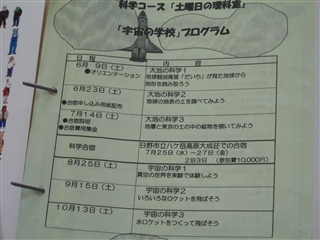 科学コース「土曜日の理科室」
「宇宙の学校」プログラム
日 程 内 容
6月 9日(土) 大地の科学1
●オリエンテーション 地球観測衛星「だいち」が見た地球から
地形を読み取ろう
6月23日(土) 大地の科学2
●合宿申し込み用紙配布 地球の地表の土を調べてみよう
7月14日(土) 大地の科学3
●合宿説明 地層と東京の土の中の鉱物を覗いてみよう
●合宿費用集金
科学合宿 日野市立八ケ岳高原大成荘での合宿
7月25日(水)~27日(金)
2泊3日 (参加費10,000円)
8月25日(土) 宇宙の科学1
真空の世界を実験で体験しよう
9月15日(土) 宇宙の科学2
いろいろなロケットを飛ばそう
10月13日(土) 宇宙の科学3
水ロケットをつくって飛ばそう